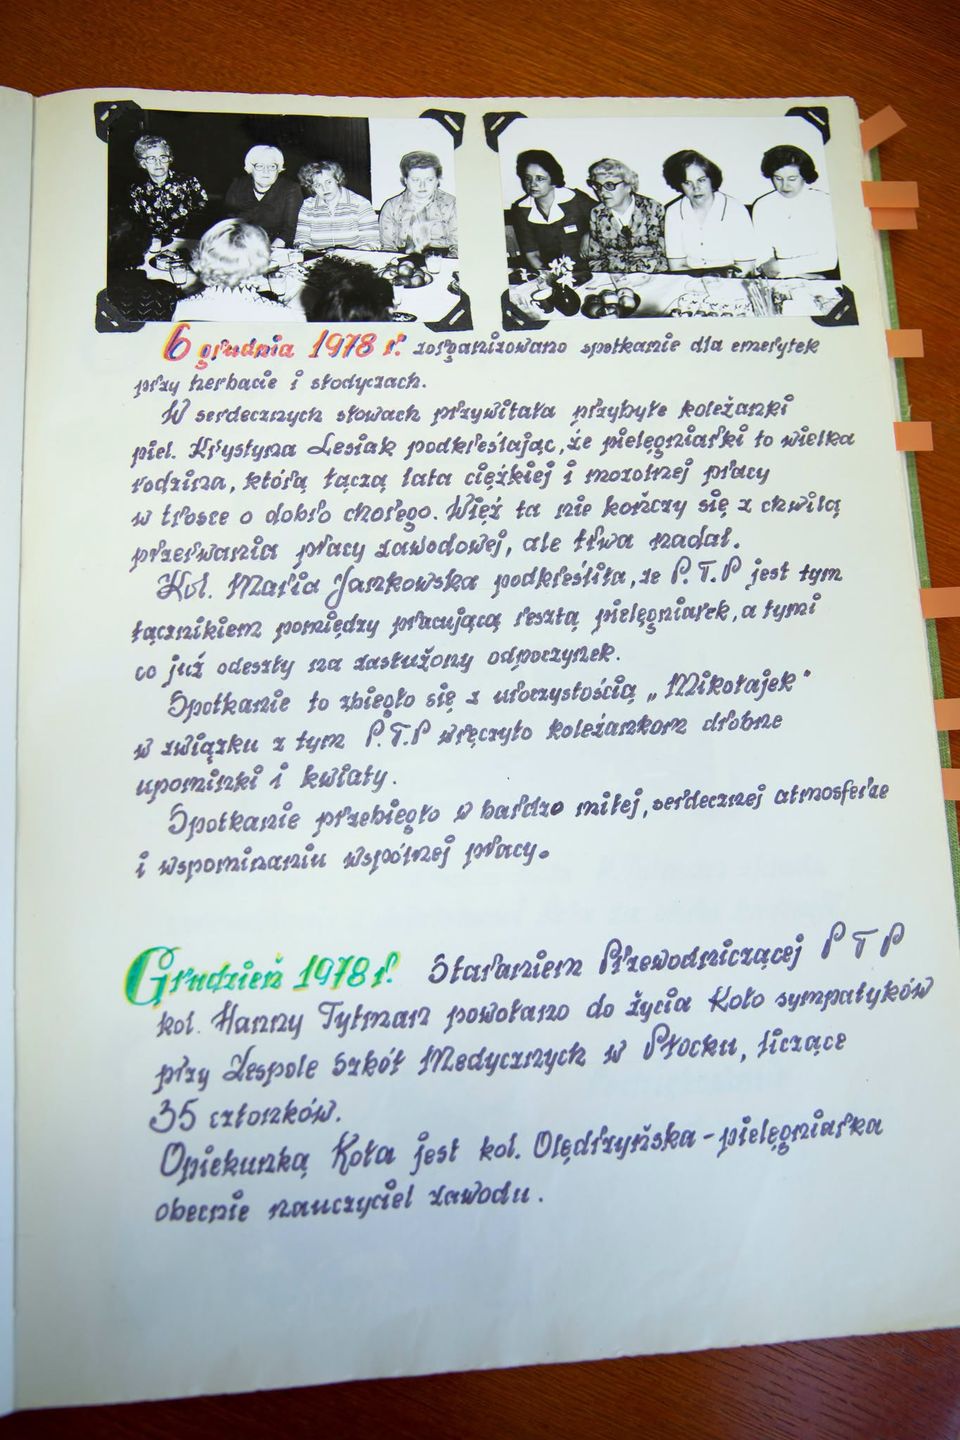 6 grudnia 1978 r. zorganizowano spotkanie dla emerytek
przy herbacie i słodyczach.
W serdecznych słowach przywitała przybyłe koleżanki
piel. Krystyna Lesiak podkreślając, że pielęgniarki to wielka
rodzina, którą łączą lata ciężkiej i mozolnej pracy
w trosce o dobro chorego. Więź ta nie kończy się z chwilą
przerwania pracy zawodowej, ale trwa nadal.
Kol. Maria Jankowska podkreśliła, że P.T.P jest tym
łącznikiem pomiędzy pracującą resztą pielęgniarek, a tymi
co już odeszły na zasłużony odpoczynek.
Spotkanie to zbiegło się z uroczystością „Mikołajek"
w związku z tym P.T.P wręczyło koleżankom drobne
upominki i kwiaty.
Spotkanie przebiegło w bardzo miłej, serdecznej atmosferze
i wspominaniu wspólnej pracy.
Grudzień 1978 r. Staraniem Przewodniczącej P T P
kol. Hanny Tytman powołano do życia Koło sympatyków
przy Zespole Szkół Medycznych w Płocku, liczące
35 członków.
Opiekunką Koła jest kol. Olędrzyńska - pielęgniarka
obecnie nauczyciel zawodu.